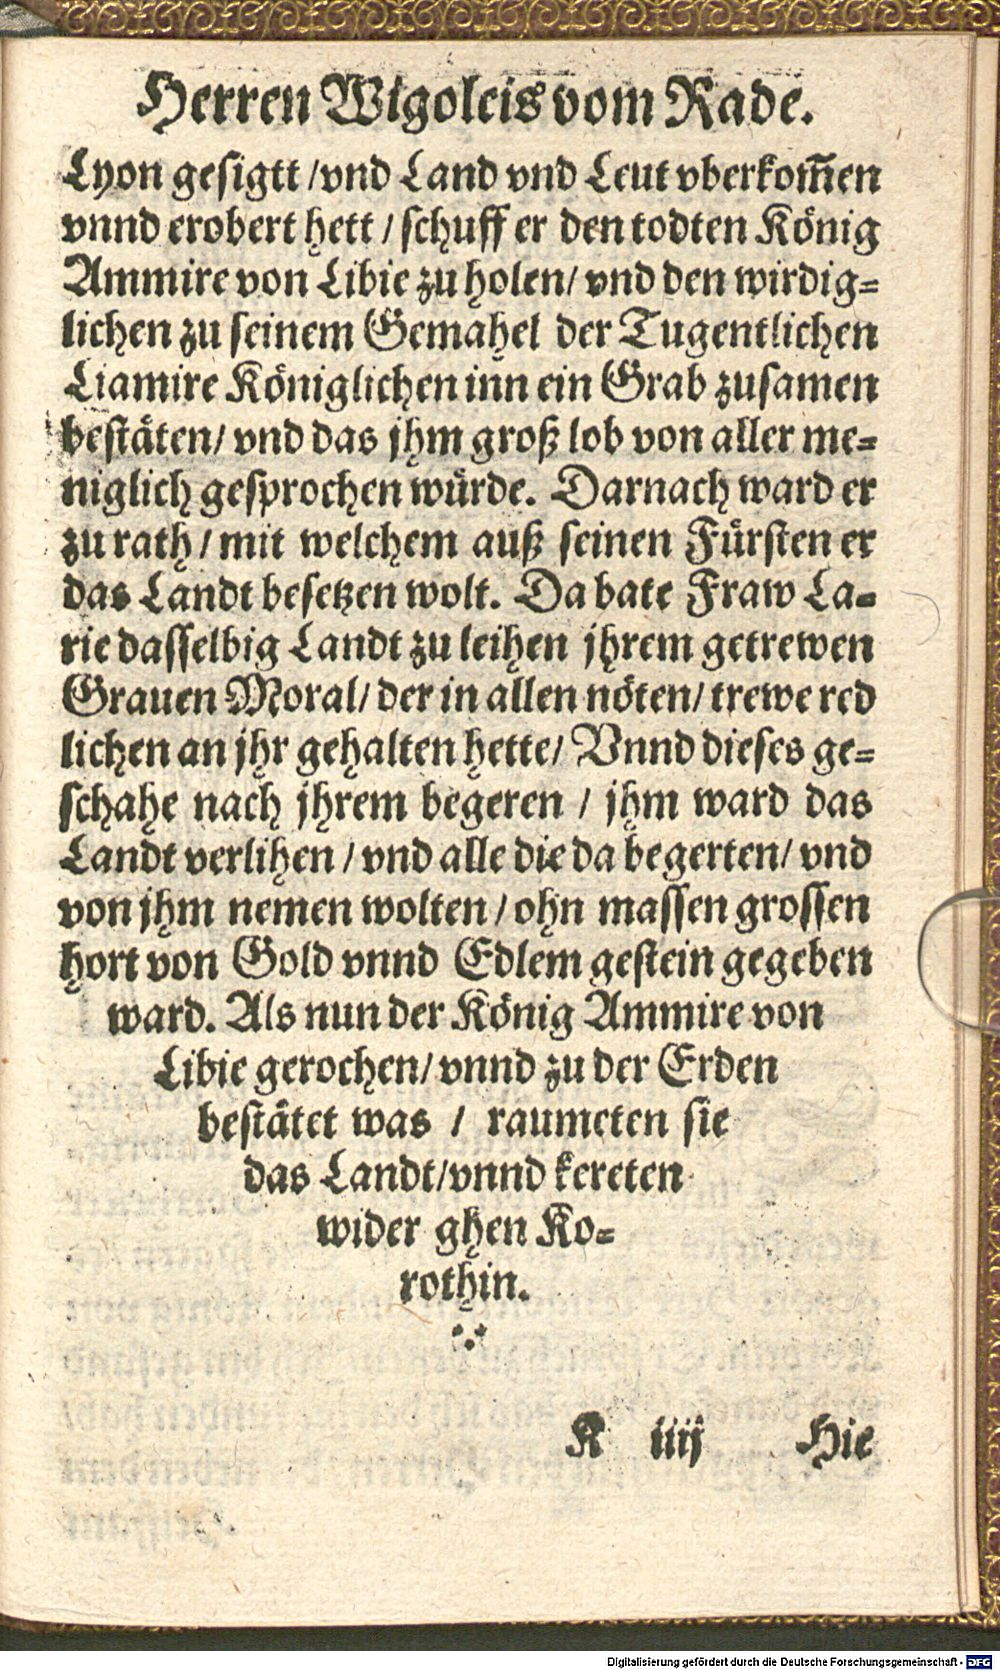 Herren Wigoleis vom Rade.
Lyon gesigtt / vnd Land vnd Leut vberkom̃en
vnnd erobert hett / schuff er den todten König
Ammire von Libie zu holen / vnd den wirdig⸗
lichen zu seinem Gemahel der Tugentlichen
Liamire Königlichen inn ein Grab zusamen
bestäten / vnd das jhm groß lob von aller me⸗
niglich gesprochen würde. Darnach ward er
zu rath / mit welchem auß seinen Fürsten er
das Landt besetzen wolt. Da bate Fraw La⸗
rie dasselbig Landt zu leihen jhrem getrewen
Grauen Moral / der in allen nöten / trewe red
lichen an jhr gehalten hette / Vnnd dieses ge⸗
schahe nach jhrem begeren / jhm ward das
Landt verlihen / vnd alle die da begerten / vnd
von jhm nemen wolten / ohn massen grossen
hort von Gold vnnd Edlem gestein gegeben
ward. Als nun der König Ammire von
Libie gerochen / vnnd zu der Erden
bestätet was / raumeten sie
das Landt / vnnd kereten
wider ghen Ko⸗
rothin.
K iiij Hie
Digitalisierung gefördert durch die Deutsche Forschungsgemeinschaft - DFG